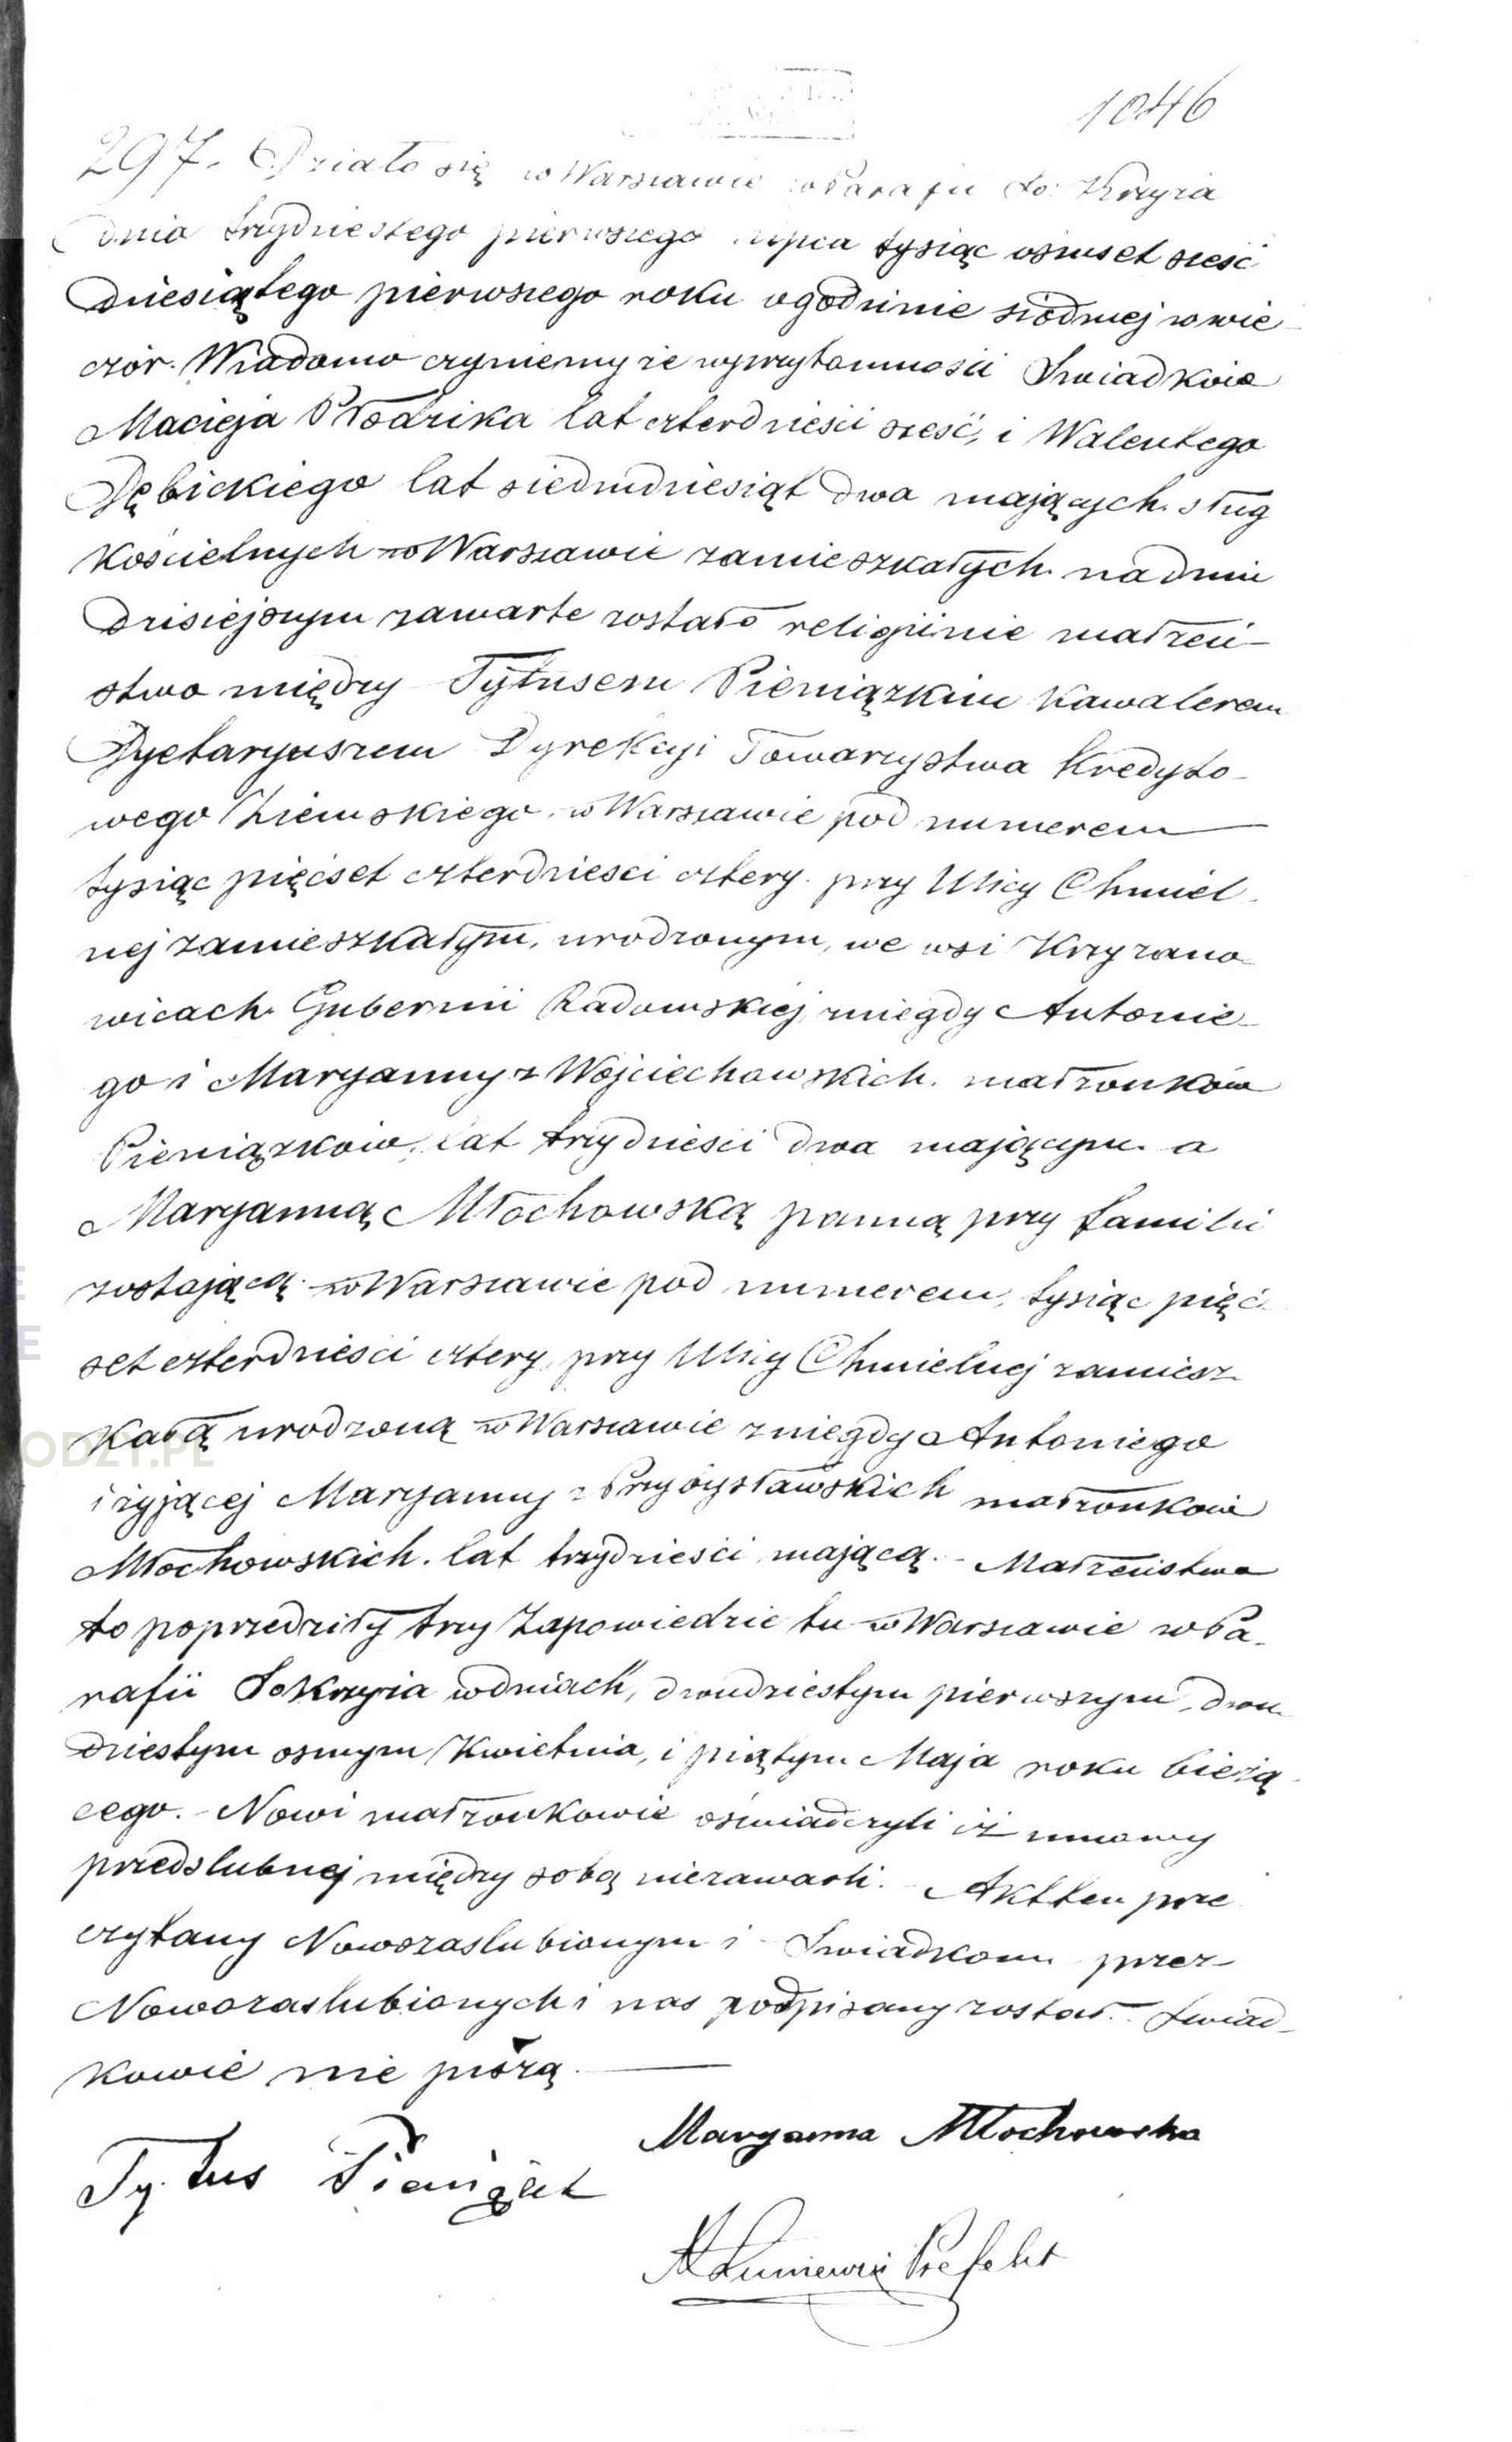 1046
297. Działo się w Warszawie w Parafii Sgo Krzyża
dnia trzydziestego pierwszego Lipca tysiąc ośmset sześć
dziesiątego pierwszego roku o godzinie siódmej w wie
czór. Wiadomo czyniemy że w przytomności Świadków
Macieja Włodzika lat czterdzieści sześć, i Walentego
Dębickiego lat siedmdziesiąt dwa mających sług
kościelnych w Warszawie zamieszkałych na dniu
dzisiejszym zawarte zostało religijnie małżeń-
stwo między Tytusem Pieniązkiem kawalerem
Dyetaryuszem Dyrekcyi Towarzystwa Kredyto-
wego Ziemskiego w Warszawie pod numerem
tysiąc pięćset czterdzieści cztery przy Ulicy Chmiel-
nej zamieszkałym, urodzonym, we wsi Krzyżano
wicach Gubernii Radomskiej z niegdy Antonie-
go i Maryanny z Wojciechowskich małżonków
Pieniązków, lat trzydzieści dwa mającym a
Maryanną Młochowską panną przy familii
zostającą w Warszawie pod numerem, tysiąc pięć-
set czterdzieści cztery przy Ulicy Chmielnej zamiesz-
kałą urodzoną w Warszawie z niegdy Antoniego
i żyjącej Maryanny z Przybysławskich małżonków
Młochowskich. lat trzydzieści mającą. - Małżeństwo
to poprzedziły trzy Zapowiedzie tu w Warszawie w Pa-
rafii S Krzyża w dniach, dwudziestym pierwszym, dwu-
dziestym osmym Kwietnia, i piątym Maja roku bieżą-
cego. - Nowi małżonkowie oświadczyli iż umowy
przedslubnej między sobą niezawarli. - Akt ten prze
czytany Nowozaslubionym i Swiadkom przez
Nowozaslubionych i nas podpisany został. Swiad-
kowie nie piszą.
Maryanna Młochowska
Tytus Pieniążek
Prefekt